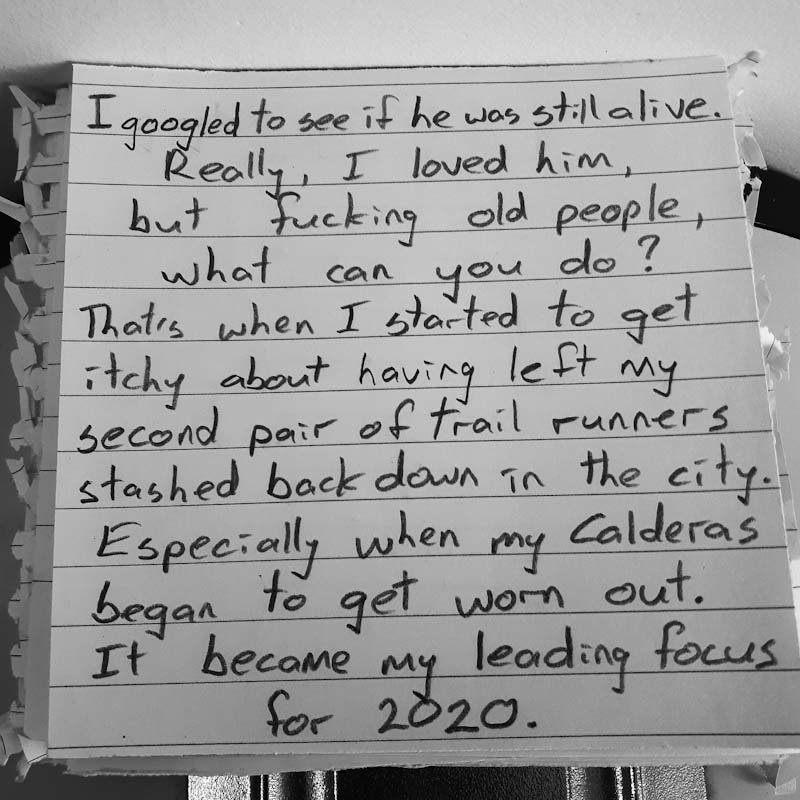 I googled to see if he was still alive.
Really, I loved him,
but fucking old people,
what can you do?
That's when I started to get
itchy about having left my
second pair of trail runners
stashed back down in the city.
Especially when my Calderas
began to get worn out.
It became my leading focus
for 2020.